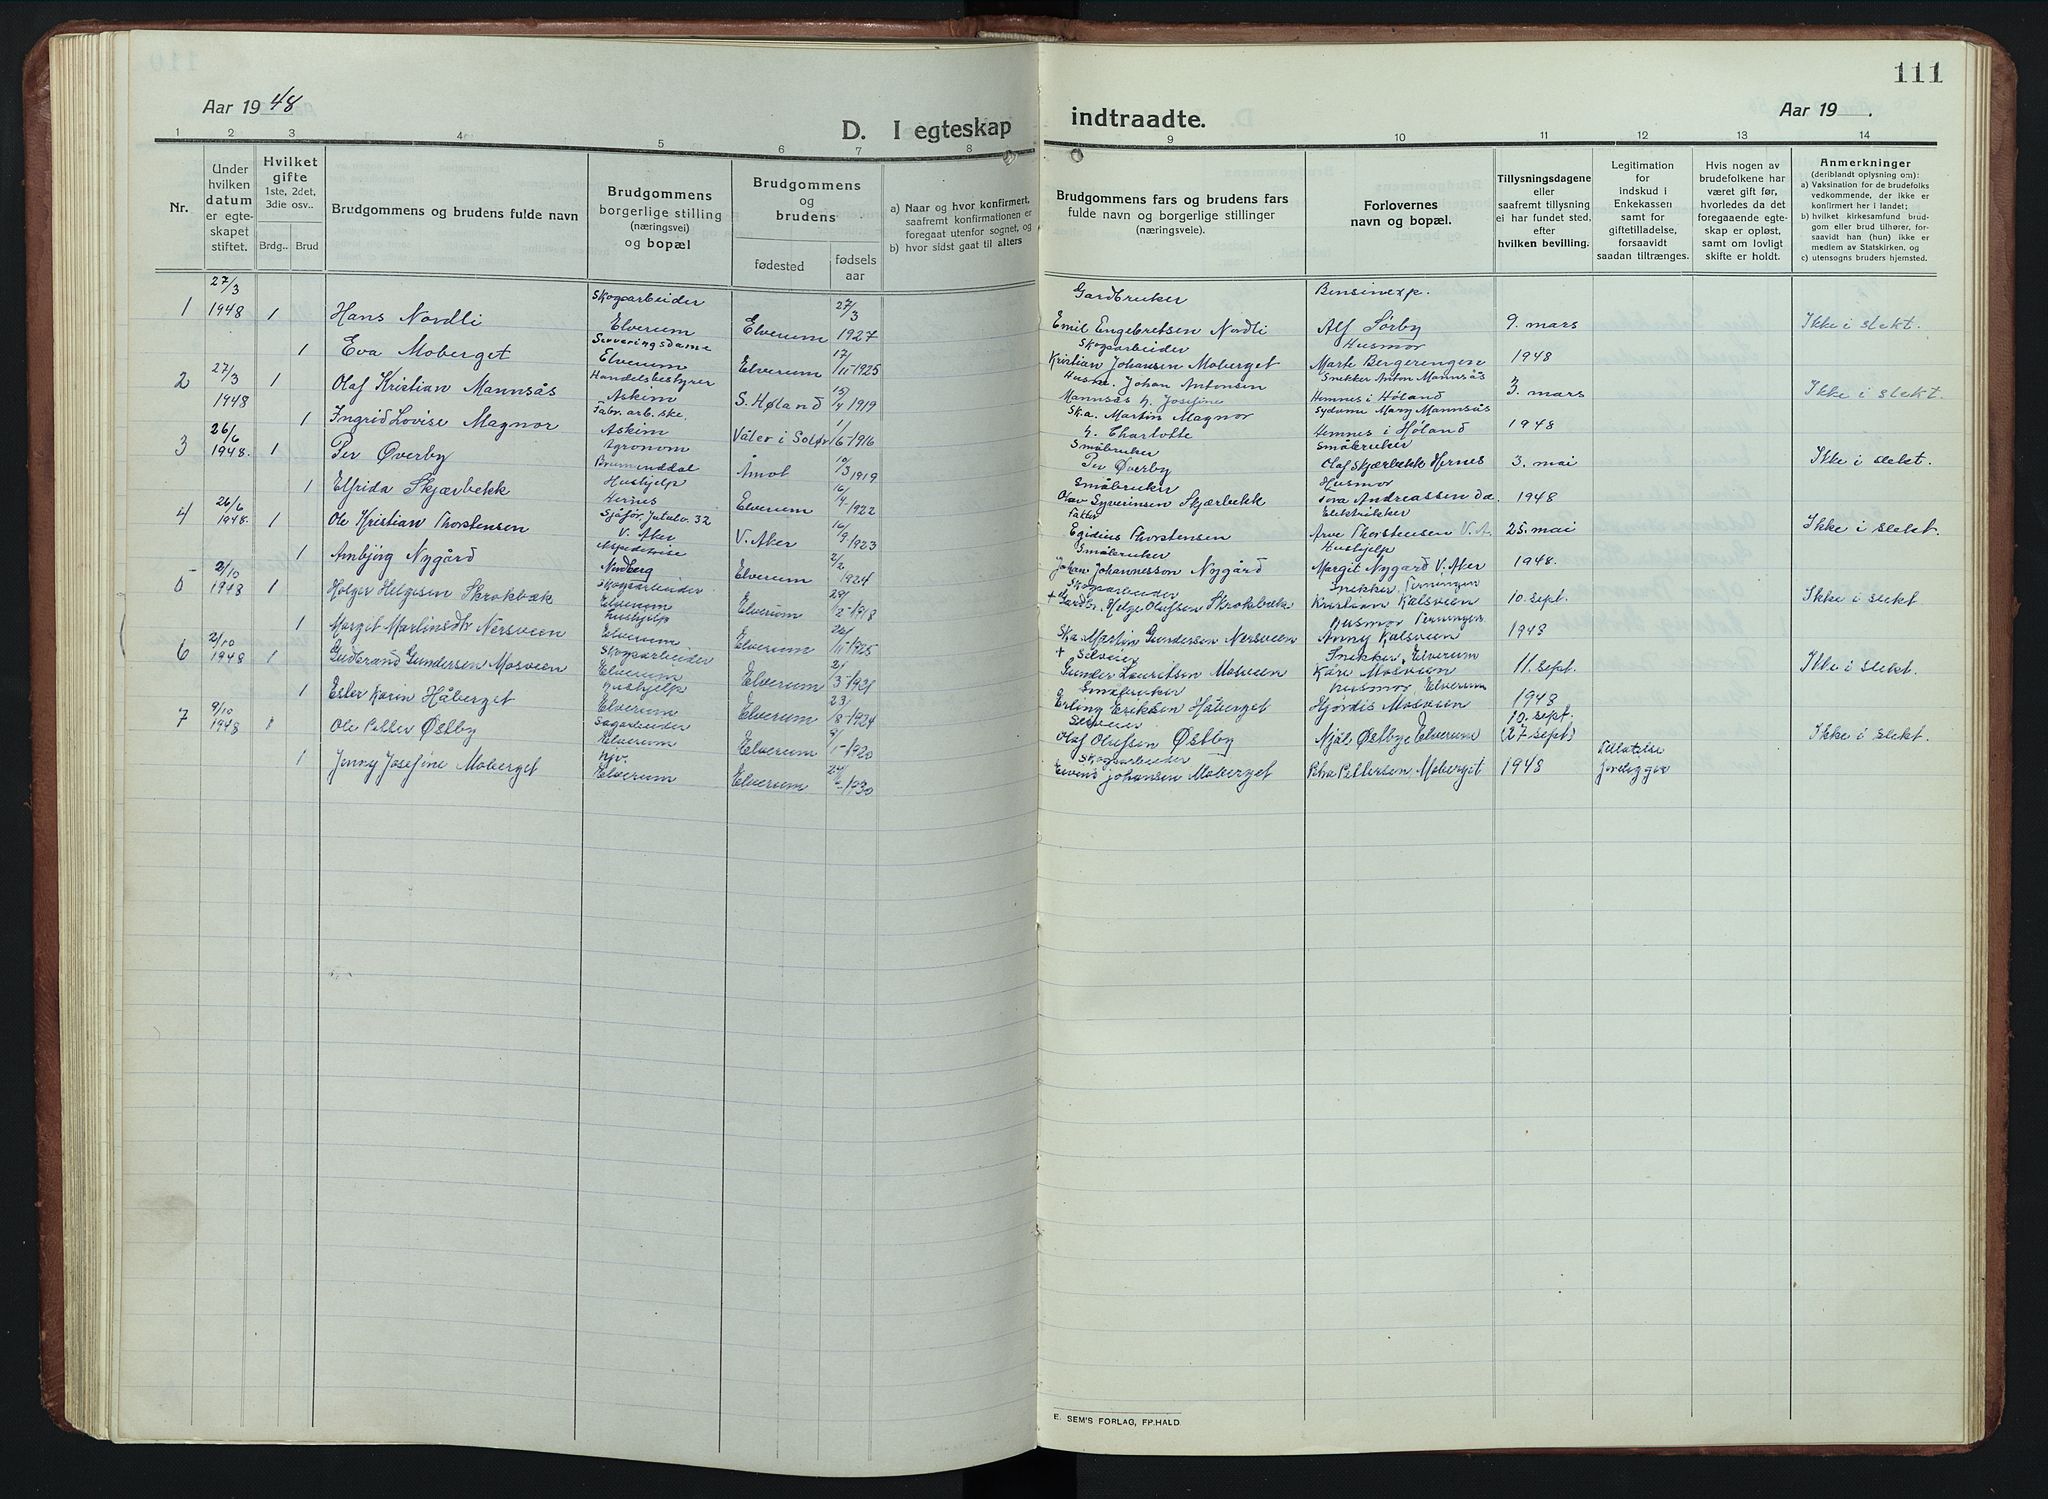 111
Aar 1948
Aar 19
D. I egteskap indtraadte.
1 2 3 4 5 6 7 8 9 10 11 12 13 14
Nr.
Under hvilken datum er egte-skapet stiftet.
Hvilket gifte 1ste, 2det, 3die osv..
Brdg.. Brud
Brudgommens og brudens fulde navn
Brudgommens borgerlige stilling (næringsvei) og bopæl
Brudgommens og brudens
fødested
fødsels aar
a) Naar og hvor konfirmert, saafremt konfirmationen er foregaat utenfor sognet, og
b) hvor sidst gaat til alters
Brudgommens fars og brudens fars fulde navn og borgerlige stillinger (næringsveie).
Forlovernes navn og bopæl.
Tillysningsdagene eller saafremt tillysning ei har fundet sted, efter hvilken bevilling.
Legitimation for indskud i Enkekassen samt for giftetilladelse, forsaavidt saadan tiltrænges.
Hvis nogen av brudefolkene har været gift før, hvorledes da det foregaaende egte-skap er opløst, samt om lovligt skifte er holdt.
Anmerkninger (deriblandt oplysning om):
a) Vaksination for de brudefolks vedkommende, der ikke er konfirmert her i landet;
b) hvilket kirkesamfund brud-gom eller brud tilhører, for-saavidt han (hun) ikke er medlem av Statskirken, og
c) utensogns bruders hjemsted.
27/3 Skogsarbeider 27/3 Gardbruker Bensinexp.
1 1948 1 Hans Nordli Elverum Elverum 1927 Emil Engebretsen Nordli Alf Sørby 9. mars Ikke i slekt.
Serveringsdame 17/ Skogsarbeider Husmor
1 Eva Moberget Elverum Elverum 11-1925 Kristian Johansen Moberget Marte Bergerengen 1948
27/3 Handelsbestyrer 15/ Johan Antonsen Snekker Anton Mannsås
2 1948 1 Olaf Kristian Mannsås Askim S. Høland 4 1919 Mannsås h. Josefine Hemnes i Høland 3. mars Ikke i slekt.
Fabr. arb. ske. 1/ Sk.a. Martin Magnor Mary Mannsås
1 Ingrid Lovise Magnor Askim Våler i Solør 6-1916 h. Charlotte Hemnes i Høland 1948
26/6 Agronom 10/ Småbruker Småbruker
3 1948. 1 Per Øverby Brumunddal Åmot 3 1919 Per Øverby Olaf Skjærbekk Hernes 3. mai Ikke i slekt.
Hushjelp 16/ Småbruker Husmor
1 Elfrida Skjærbekk Hernes Elverum 4-1922 Olav Syverinsen Skjærbekk Tora Andreassen 1948
26/6 Sjåfør, 32 16/ Elektrikker
4 1948. 1 Ole Kristian Thorstensen V. Aker V. Aker 9 1923 Egidius Thorstensen Arve Thorstensen V.A. 25. mai Ikke i slekt.
2/2 Småbruker Hushjelp
1 Ambjørg Nygård Nordberg Elverum 1924 Johan Johannesson Nygård Margit Nygård V. Aker 1948.
2/10 Skogsarbeider 29/ Skogsarbeider Snekker Terningen
5 1948 1 Holger Helgesen Skrokbæk Elverum Elverum 2-1918 + Helge Olufsen Skrokbæk Kristian Kålsveen 10. sept. Ikke i slekt
hushjelp Husmor Terningen
1 Marget Martinsdtr Nersveen Elverum Elverum 11-1925 Ska. Martin Gundersen Nersveen Anny Kålsveen 1948
2/10 Skogsarbeider 21 + Selveier Snekker, Elverum
6 1948 1 Gudbrand Gundersen Mosveen Elverum Elverum 3-1921 Gunder Lauritsen Mosveen Kåre Mosveen 11. sept. Ikke i slekt
hushjelp 23 Småbruker husmor, Elverum
1 Ester Karin Håberget Elverum Elverum 8-1924 Erling Eriksen Håberget Hjørdis Mosveen 1948
9/10 Sagarbeider Selveier 10. sept.
7 1948 1 Ole Petter Østby Elverum Elverum 1-1920 Olaf Olufsen Østby Njål Østbye, Elverum (27 sept) Ikke i slekt.
hjv. Skogsarbeider Tillatelse
1 Jenny Josefine Moberget Elverum Elverum 1930 Johansen Moberget Petra Pettersen, Moberget 1948 foreligger
E. SEM'S FORLAG, FR.HALD